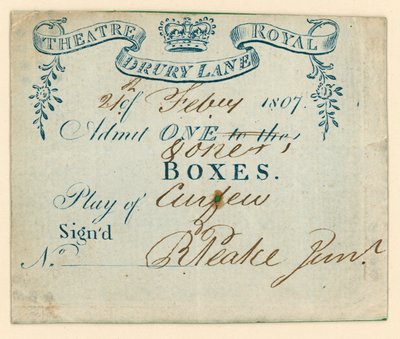 THEATRE ROYAL
DRURY LANE
21th of Febry 1807.
Admit ONE to the
BOXES.
Play of Curfew
Sign'd
R Peake Junr
No.